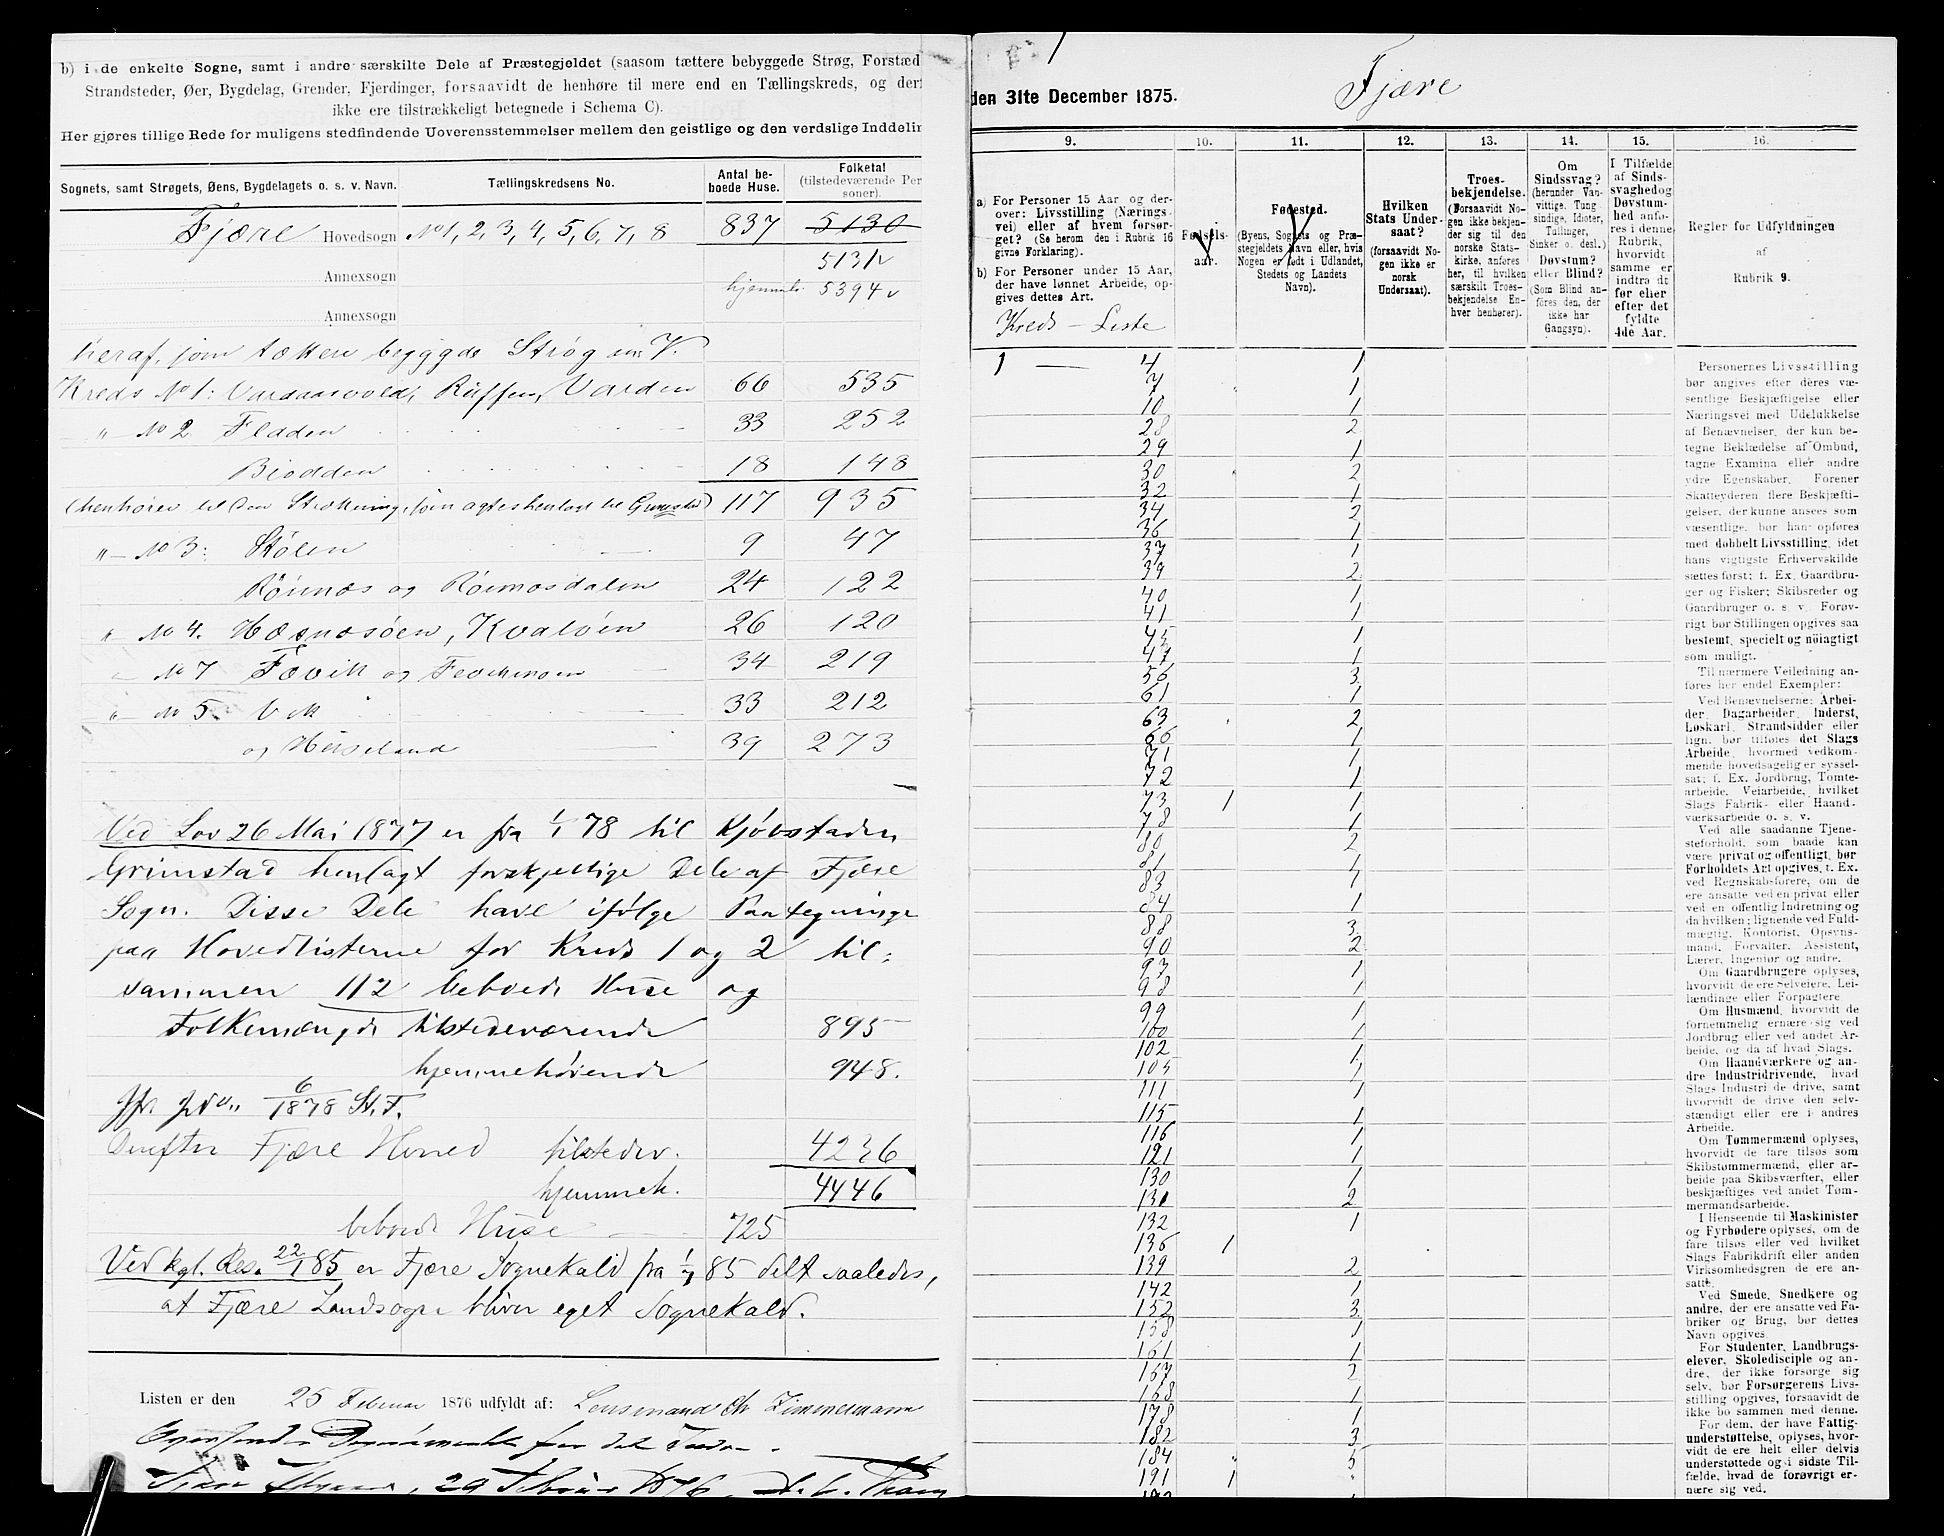 b) i de enkelte Sogne, samt i andre særskilte Dele af Præstegjeldet (saasom tættere bebyggede Strøg, Forstæd
Strandsteder, Øer, Bygdelag, Grender, Fjerdinger, forsaavidt de henhøre til mere end en Tællingskreds, og der
ikke ere tilstrækkeligt betegnede i Schema C).
Her gjøres tillige Rede for muligens stedfindende Uoverensstemmelser mellem den geistlige og den verdslige Inddelin
Sognets, samt Strøgets, Øens, Bygdelagets o. s. v. Navn. Tællingskredsens No. Antal be- boede Huse. Folketal (tilstedeværende Per soner).
Fjære Hovedsogn No 1, 2, 3, 4, 5, 6, 7, 8 837 5130
5131
Annexsogn hjemmeh. 5394
Annexsogn
heraf, som tættere bebyggde Strøg
Kreds No 1: Vardaasvold, Varden 66 535
" - No 2 Fladen 33 252
Biodden 18 143
117 935
" - No 3: Stølen 9 47
Rönnæs og Rönnæsdalen 24 122
" No 4. Hæsnæsöen, Kvalöen 26 120
No 7 Fævik og 34 219
" No 5. Vik 33 212
og Hesseland 39 273
Ved Lov 26 Mai 1877 er fra 1/1 78 til Kjøbstaden
Grimstad henlagt forskjellige Dele af Fjære
Sogn. Disse Dele have ifølge Paategninge
paa Hovedlisterne for Kreds 1 og 2 til:
sammen 112 beboede Huse og
Folkemængde tilstedeværende 895
hjemmehørende 948.
6/1878 St. F.
Derefter Fjære Herred tilstedev. 4236
hjemmeh. 4446
beboede Huse 725
Ved kgl. Res. 22/1 85 er Fjære Sognekald fra 1/7 85 delt saaledes,
at Fjære Landsogn bliver eget Sognekald.
Listen er den 25 Februar 1876 udfyldt af: Lensmand Chr Zimmermann
1876
1
den 31te December 1875. Fjære
9. 10. 11. 12. 13. 14. 15. 16.
a) For Personer 15 Aar og der-
over: Livsstilling (Nærings-
vei) eller af hvem forsør-
get? (Se herom den i Rubrik 16
givne Forklaring).
b) For Personer under 15 Aar,
der have lønnet Arbeide, op-
gives dettes Art.
Fødsels-
aar.
Fødested.
(Byens, Sognets og Præ-
stegjeldets Navn eller, hvis
Nogen er født i Udlandet,
Stedets og Landets
Navn).
Hvilken
Stats Under-
saat?
(forsaavidt No-
gen ikke er
norsk
Undersaat).
Troes-
bekjendelse.
(Forsaavidt No-
gen ikke bekjen-
der sig til den
norske Stats-
kirke, anføres
her, til hvilken
særskilt Troes-
bekjendelse En-
hver henhører).
Om
Sindssvag?
(herunder Van-
vittige, Tung-
sindige, Idioter,
Tullinger,
Sinker o. desl.)
Døvstum?
eller Blind?
(Som Blind an-
føres den, der
ikke har
Gangsyn).
I Tilfælde
af Sinds-
svaghed og
Døvstum-
hed anfø-
res i denne
Rubrik,
hvorvidt
samme er
indtra dt
før eller
efter det
fyldte
4de Aar.
Regler for Udfyldningen
af
Rubrik 9.
Kreds - Liste
1 — 4 1
7 1
10 1
28 2
29 1
30 2
32 1
34 2
36 1
37 1
39 2
40 1
41 1
45 1
47 1
56 3
61 1
63 2
66 1
71 1
72 1
73 1 1
78 1
80 2
81 1
83 1
84 1
88 3
90 2
93 1
98 1
99 1
100 1
102 1
105 1
111 1
115 1
116 1
121 1
130 1
131 2
132 1
136 1
139 2
142 1
152 3
158 1
161 1
167 2
168 1
178 1
182 3
184 5
191 1
Personernes Livsstilling
bør angives efter deres væ-
sentlige Beskjæftigelse eller
Næringsvei med Udelukkelse
af Benævnelser, der kun be-
tegne Beklædelse af Ombud,
tagne Examina eller andre
ydre Egenskaber. Forener
Skatteyderen flere Beskjæfti-
gelser, der kunne ansees som
væsentlige, bør han opføres
med dobbelt Livsstilling, idet
hans vigtigste Erhvervskilde
sættes først; f. Ex. Gaardbru-
ger og Fisker; Skibsreder og
Gaardbruger o. s. v. Forøv-
rigt bør Stillingen opgives saa
bestemt, specielt og nöiagtigt
som muligt.
Til nærmere Veiledning an-
føres her endel Exempler:
Ved Benævnelserne: Arbei-
der, Dagarbeider, Inderst,
Løskarl, Strandsidder eller
lign. bør tilføres det Slags
Arbeide, hvormed vedkom-
mende hovedsagelig er syssel-
sat; f. Ex. Jordbrug, Tomte-
arbeide, Veiarbeide, hvilket
Slags Fabrik- eller Haand-
værksarbeide o. s. v.
Ved alle saadanne Tjene-
steforhold, som baade kan
være privat og offentligt, bør
Forholdets Art opgives, t. Ex.
ved Regnskabsførere, om de
ere ansatte ved en privat eller
ved en offentlig Indretning og
da hvilken; lignende ved Fuld-
mægtig, Kontorist, Opsyns-
mand, Forvalter, Assistent,
Lærer, Ingeniør og andre.
Om Gaardbrugere oplyses,
hvorvidt de ere Selveiere, Lei-
lændinge eller Forpagtere.
Om Husmænd, hvorvidt de
fornemmelig ernære sig ved
Jordbrug eller ved andet Ar-
beide, og da af hvad Slags.
Om Haandværkere og an-
dre Industridrivende, hvad
Slags Industri de drive, samt
hvorvidt de drive den selv-
stændigt eller ere i andres
Arbeide.
Om Tømmermænd oplyses,
hvorvidt de fare tilsøs som
Skibstømmermænd, eller ar-
beide paa Skibsværfter, eller
beskjæftiges ved andet Tøm-
mermandsarbeide.
I Henseende til Maskinister
og Fyrbødere oplyses, om de
fare tilsøs eller ved hvilket
Slags Fabrikdrift eller anden
Virksomhedsgren de ere an-
satte.
Ved Smede, Snedkere og
andre, der ere ansatte ved Fa-
briker og Brug, bør dettes
Navn opgives.
For Studenter, Landbrugs-
elever, Skoledisciple og an-
dre, der ikke forsørge sig
selv, bør Forsørgerens Livs-
stilling opgives, forsaavidt de
ikke bo sammen med denne.
For dem, der have Fattig-
understøttelse, oplyses, hvor-
vidt de ere helt eller delvis
understøttede og i sidste Til-
fælde, hvad de forøvrigt er-
nære sig ved.